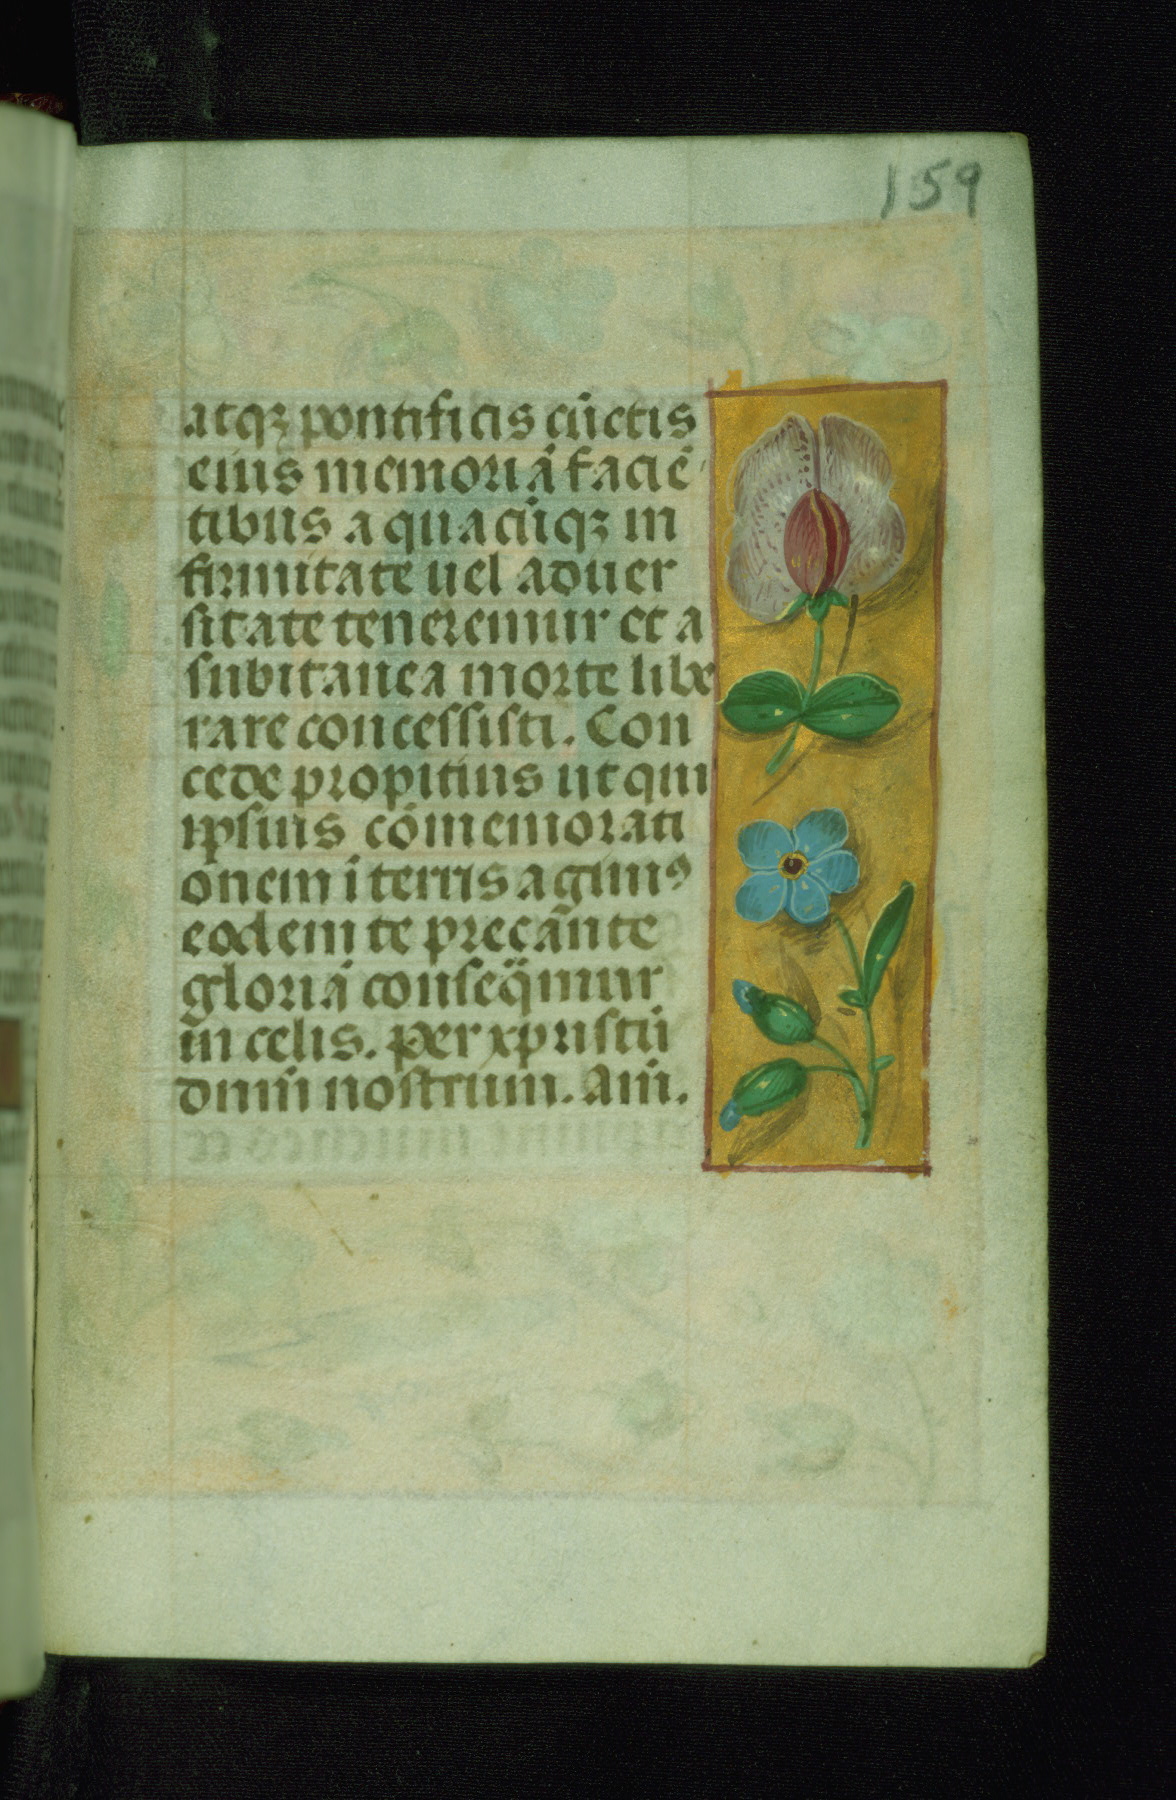 159
atqꝫ pontificis cūctis
eius memoriā faciē
tibus a quacūqꝫ in
firmitate uel aduer
sitate teneremur et a
subitanea morte libe
rare concessisti. Con
cede propitius ut qui
ipsius cōmemorati
onem ī terris agimꝰ
eodem te precāte
gloriā conseq̄mur
in celis. per xp̄ristū
dnm̄ nostrum. Am̄.